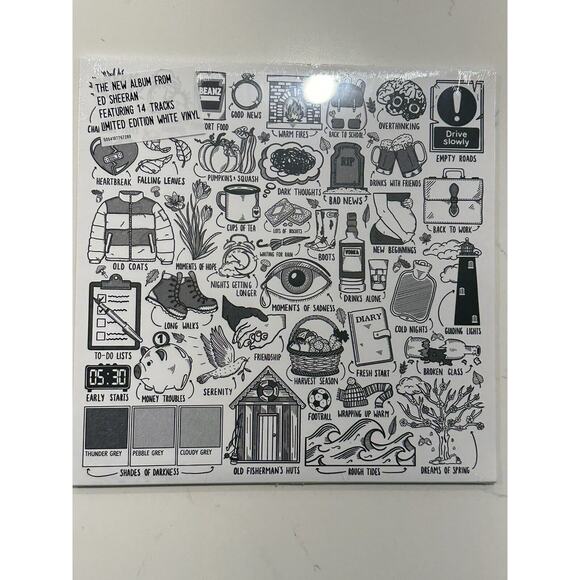 THE NEW ALBUM FROM
ED SHEERAN
FEATURING 14 TRACKS
LIMITED EDITION WHITE VINYL
BEANZ
ORT FOOD
GOOD NEWS
WARM FIRES
BACK TO SCHOOL
OVERTHINKING
Drive
slowly
EMPTY ROADS
HEARTBREAK
FALLING LEAVES
PUMPKINS & SQUASH
DARK THOUGHTS
RIP
BAD NEWS
DRINKS WITH FRIENDS
BACK TO WORK
OLD COATS
MOMENTS OF HOPE
CUPS OF TEA
LOTS OF BISCUITS
WAITING FOR RAIN
BOOTS
VODKA
DRINKS ALONE
NEW BEGINNINGS
NIGHTS GETTING
LONGER
MOMENTS OF SADNESS
COLD NIGHTS
GUIDING LIGHTS
TO-DO LISTS
LONG WALKS
FRIENDSHIP
HARVEST SEASON
DIARY
FRESH START
BROKEN GLASS
05:30
EARLY STARTS
1
MONEY TROUBLES
SERENITY
FOOTBALL
WRAPPING UP WARM
THUNDER GREY
PEBBLE GREY
CLOUDY GREY
SHADES OF DARKNESS
OLD FISHERMAN'S HUTS
ROUGH TIDES
DREAMS OF SPRING